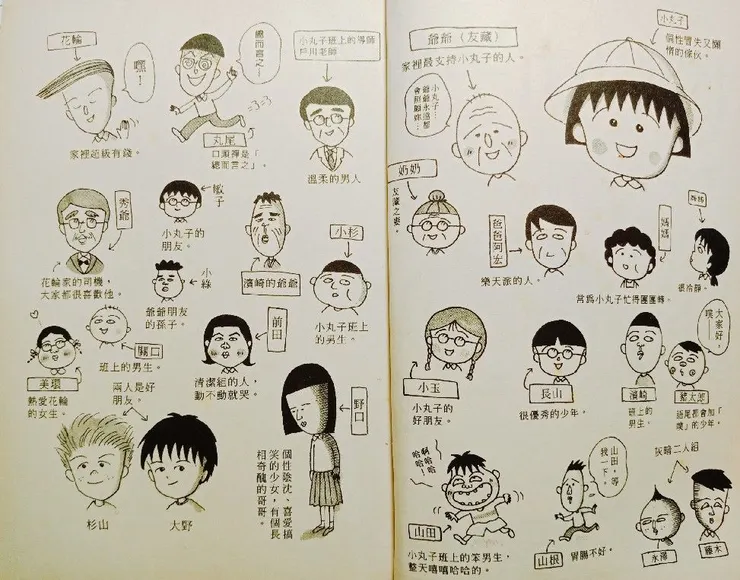 小丸子
個性冒失又懶
惰的傢伙。
爺爺（友藏）
家裡最支持小丸子的人。
小丸子…
爺爺永遠都
會照顧妳…
奶奶
友藏之妻。
爸爸阿宏
樂天派的人。
媽媽
常為小丸子忙得團團轉。
姊姊
很冷靜。
小玉
小丸子的
好朋友。
長山
很優秀的少年。
濱崎
班上的
男生。
大家好，
噗——
豬太郎
語尾都會加「
噗」的少年。
哈啊
哈哈
哈哈
山田
小丸子班上的笨男生，
整天嘻嘻哈哈的。
山田，等
我一下。
山根
胃腸不好。
灰暗二人組
永澤
藤木
花輪
嘿！
家裡超級有錢。
總而言之…
丸尾
口頭禪是「
總而言之」。
小丸子班上的導師
戶川老師
溫柔的男人
秀爺
花輪家的司機，
大家都很喜歡他。
敏子
小丸子的
朋友。
濱崎的爺爺
小杉
小丸子班上
的男生。
小綠
爺爺朋友
的孫子。
美環
熱愛花輪
的女生。
關口
班上的男生。
前田
清潔組的人，
動不動就哭。
兩人是好
朋友。
杉山
大野
野口
個性陰沈、喜愛搞
笑的少女，有個長
相奇醜的哥哥。